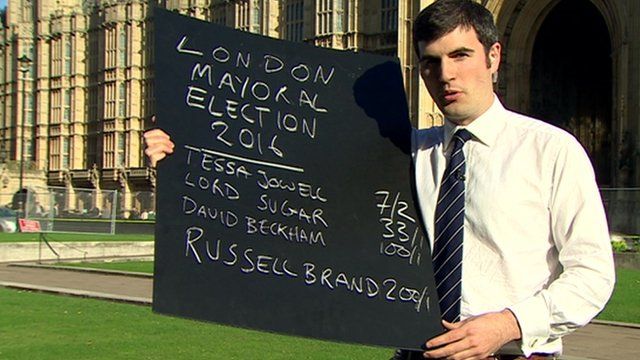 LONDON
MAYORAL
ELECTION
2016
TESSA JOWELL 7/2
LORD SUGAR 33/1
DAVID BECKHAM 100/1
RUSSELL BRAND 200/1